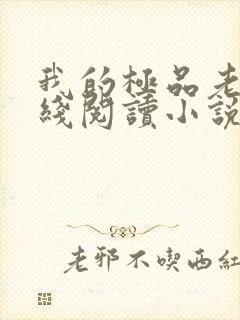 我的極品老
綫閱讀小説
老邪不喫西紅